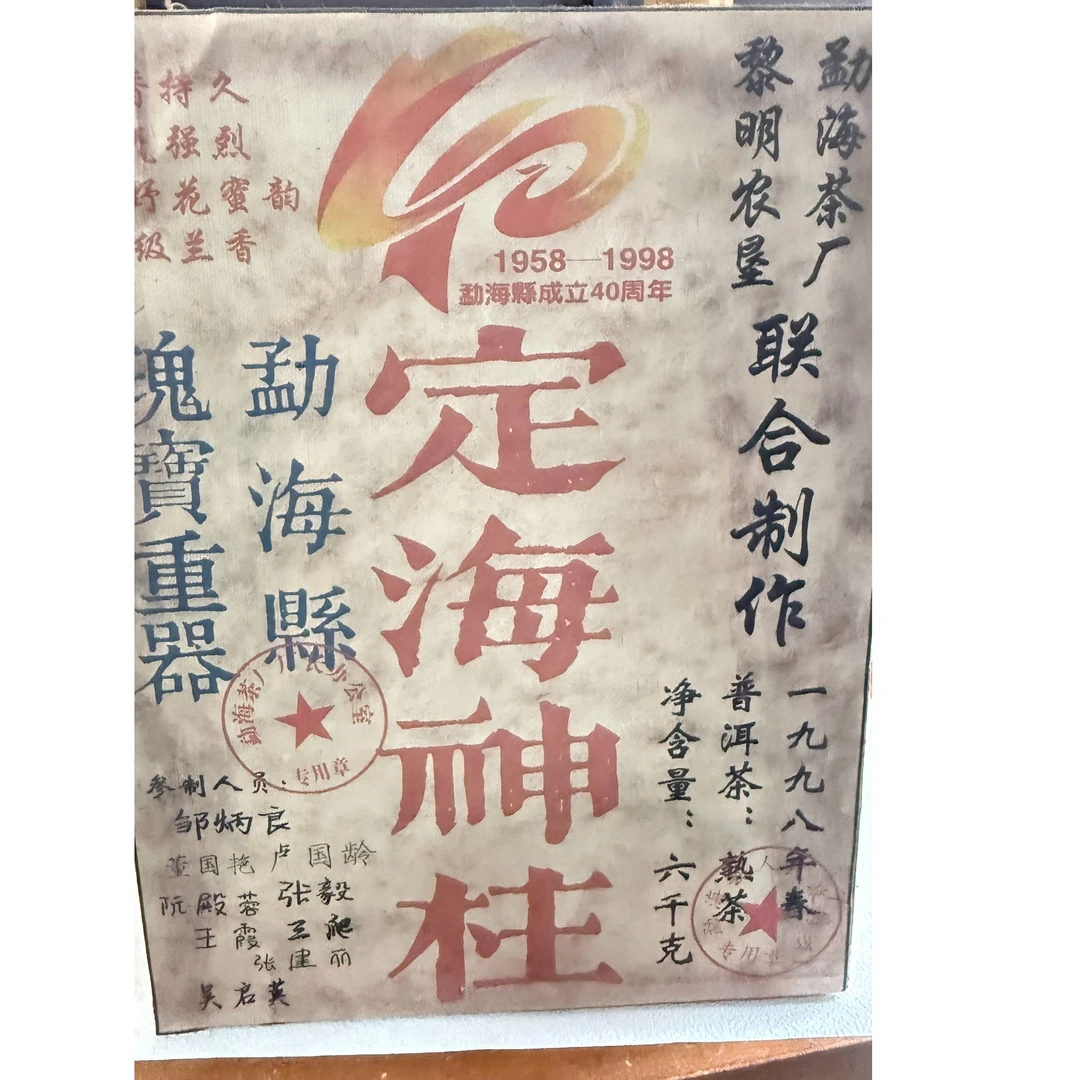 勐海茶厂
黎明农垦
联合制作
一九九八年春
普洱茶：熟茶
净含量：六千克
1958—1998
勐海縣成立40周年
定海神柱
持久
强烈
花蜜韵
级兰香
勐海縣
瑰寶重器
专用章
专用章
参制人员：
邹炳良
董国艳 卢国龄
阮殿蓉 张毅
王霞 三爬
张建丽
吴启英